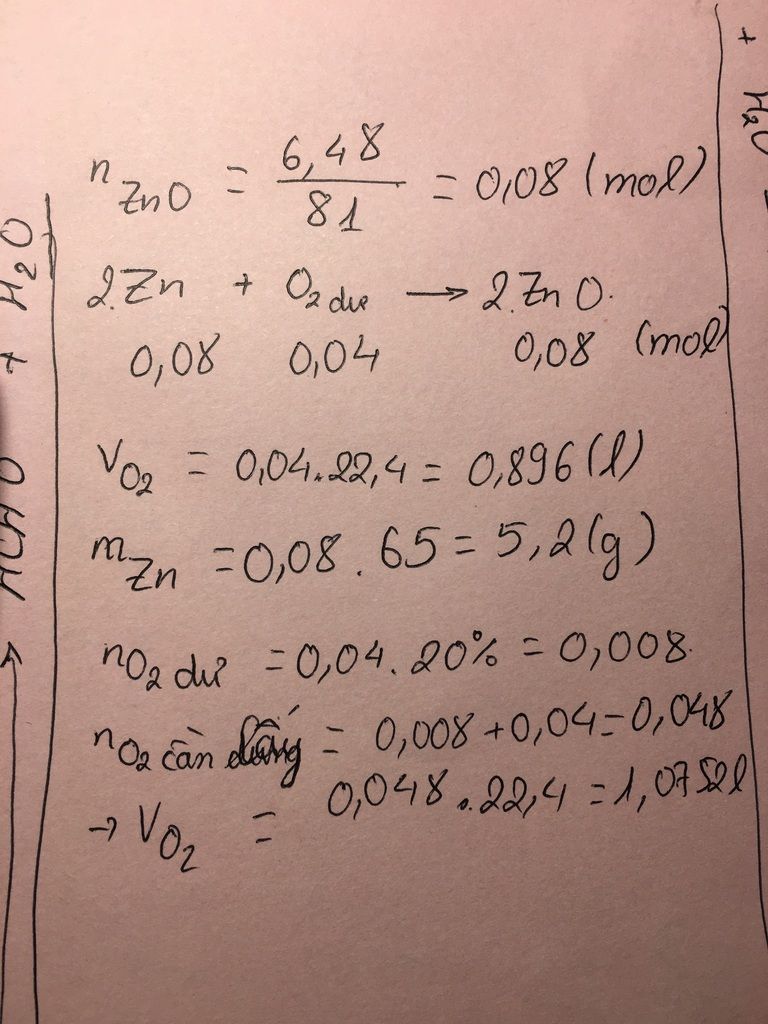 n ZnO = 6,48 / 81 = 0,08 (mol)
2.Zn + O2 dư → 2.ZnO.
0,08 0,04 0,08 (mol)
VO2 = 0,04.22,4 = 0,896 (l)
mZn = 0,08 . 65 = 5,2 (g)
nO2 dư = 0,04. 20% = 0,008.
nO2 cần = 0,008 + 0,04 = 0,048
→ VO2 = 0,048 . 22,4 = 1,0752l
+ H2O
+ H2O